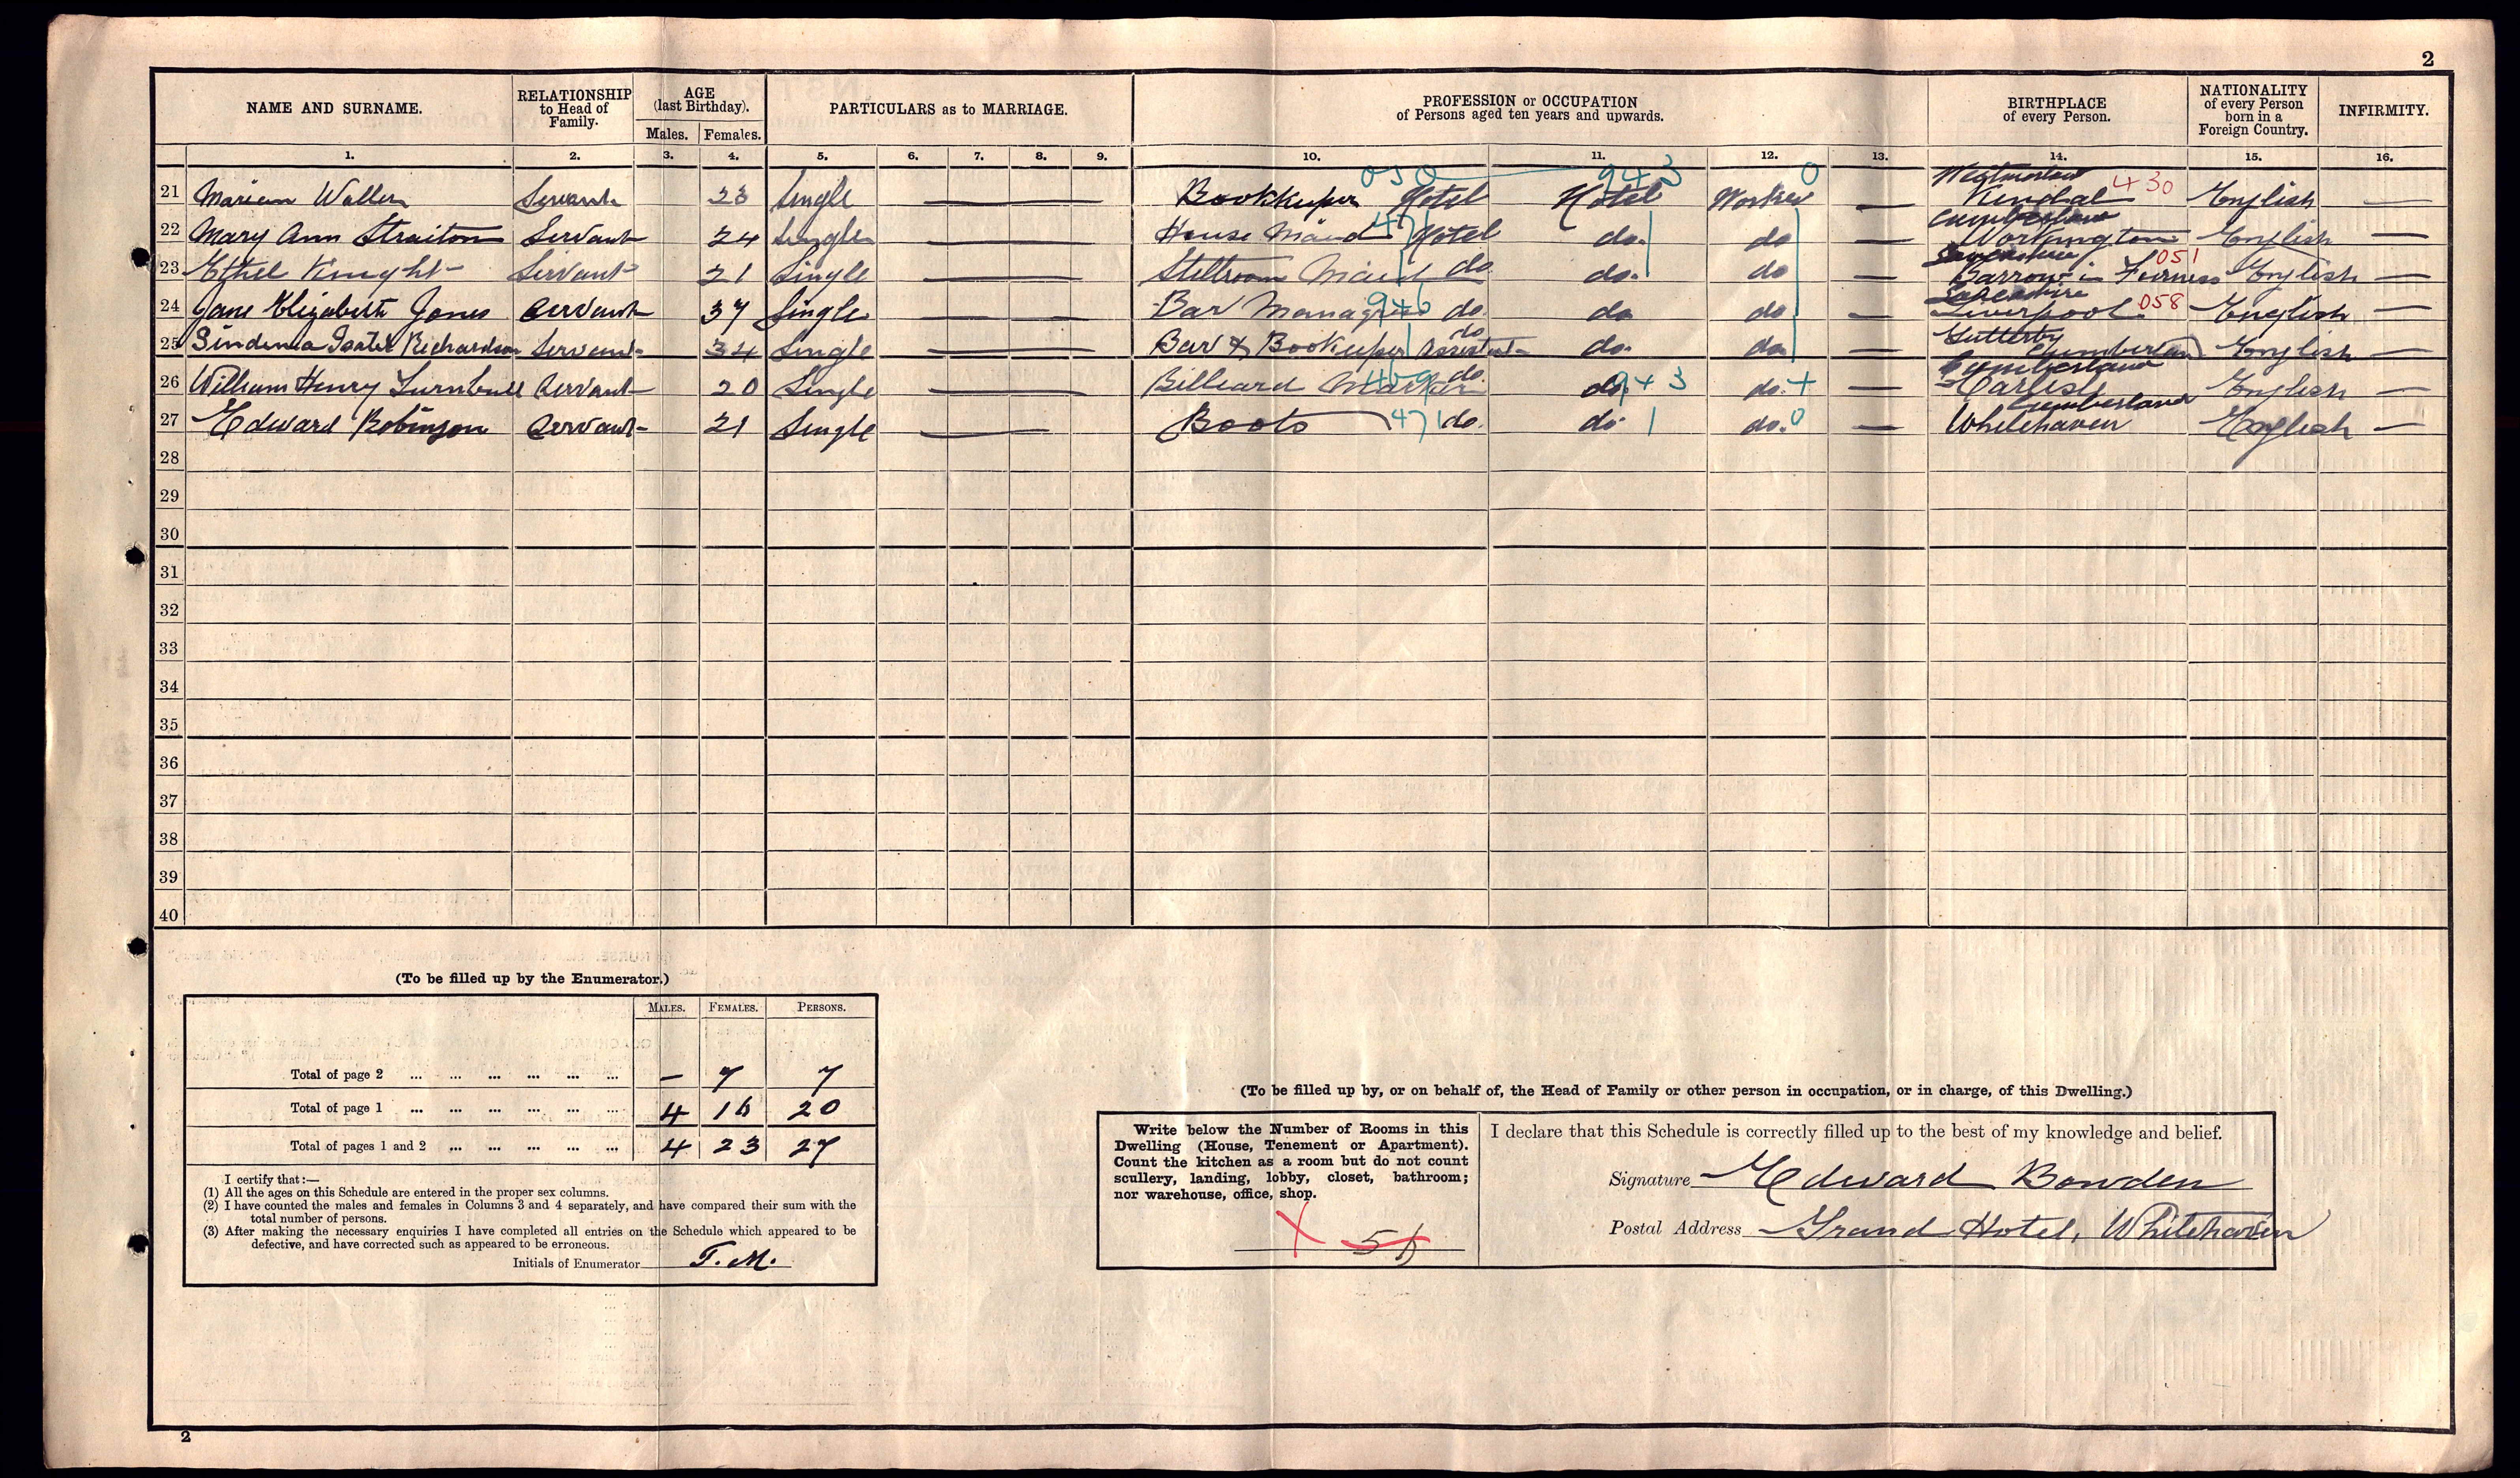 2
NAME AND SURNAME. RELATIONSHIP to Head of Family. AGE (last Birthday). Males. Females. PARTICULARS as to MARRIAGE. PROFESSION or OCCUPATION of Persons aged ten years and upwards. BIRTHPLACE of every Person. NATIONALITY of every Person born in a Foreign Country. INFIRMITY.
1. 2. 3. 4. 5. 6. 7. 8. 9. 10. 11. 12. 13. 14. 15. 16.
21 Marian Waller Servant 23 Single — Bookkeeper Hotel 050 Hotel 943 Worker 0 — Westmorland Kendal 430 English —
22 Mary Ann Straiton Servant 24 Single — House Maid 471 Hotel do. do — Cumberland Workington English —
23 Ethel Knight Servant 21 Single — Stillroom Maid do do. do — Lancashire Barrow in Furness 051 English —
24 Jane Elizabeth Jones Servant 37 Single — Bar Manageress 946 do. do do — Lancashire Liverpool 058 English —
25 Richardson Servant 34 Single — Bar & Bookeeper Assistant do do. do — Gutterby Cumberland English —
26 William Henry Turnbull Servant 20 Single — Billiard Marker do. do. 943 do. + — Cumberland Carlisle English —
27 Edward Robinson Servant 21 Single — Boots 471 do. do. do. 0 — Cumberland Whitehaven English —
28
29
30
31
32
33
34
35
36
37
38
39
40
(To be filled up by the Enumerator.)
MALES. FEMALES. PERSONS.
Total of page 2 ... ... ... ... ... ... — 7 7
Total of page 1 ... ... ... ... ... ... 4 16 20
Total of pages 1 and 2 ... ... ... ... ... 4 23 27
I certify that:—
(1) All the ages on this Schedule are entered in the proper sex columns.
(2) I have counted the males and females in Columns 3 and 4 separately, and have compared their sum with the
total number of persons.
(3) After making the necessary enquiries I have completed all entries on the Schedule which appeared to be
defective, and have corrected such as appeared to be erroneous.
Initials of Enumerator T. M.
(To be filled up by, or on behalf of, the Head of Family or other person in occupation, or in charge, of this Dwelling.)
Write below the Number of Rooms in this
Dwelling (House, Tenement or Apartment).
Count the kitchen as a room but do not count
scullery, landing, lobby, closet, bathroom;
nor warehouse, office, shop.
X 56
I declare that this Schedule is correctly filled up to the best of my knowledge and belief.
Signature Edward Bowden
Postal Address Grand Hotel, Whitehaven
2